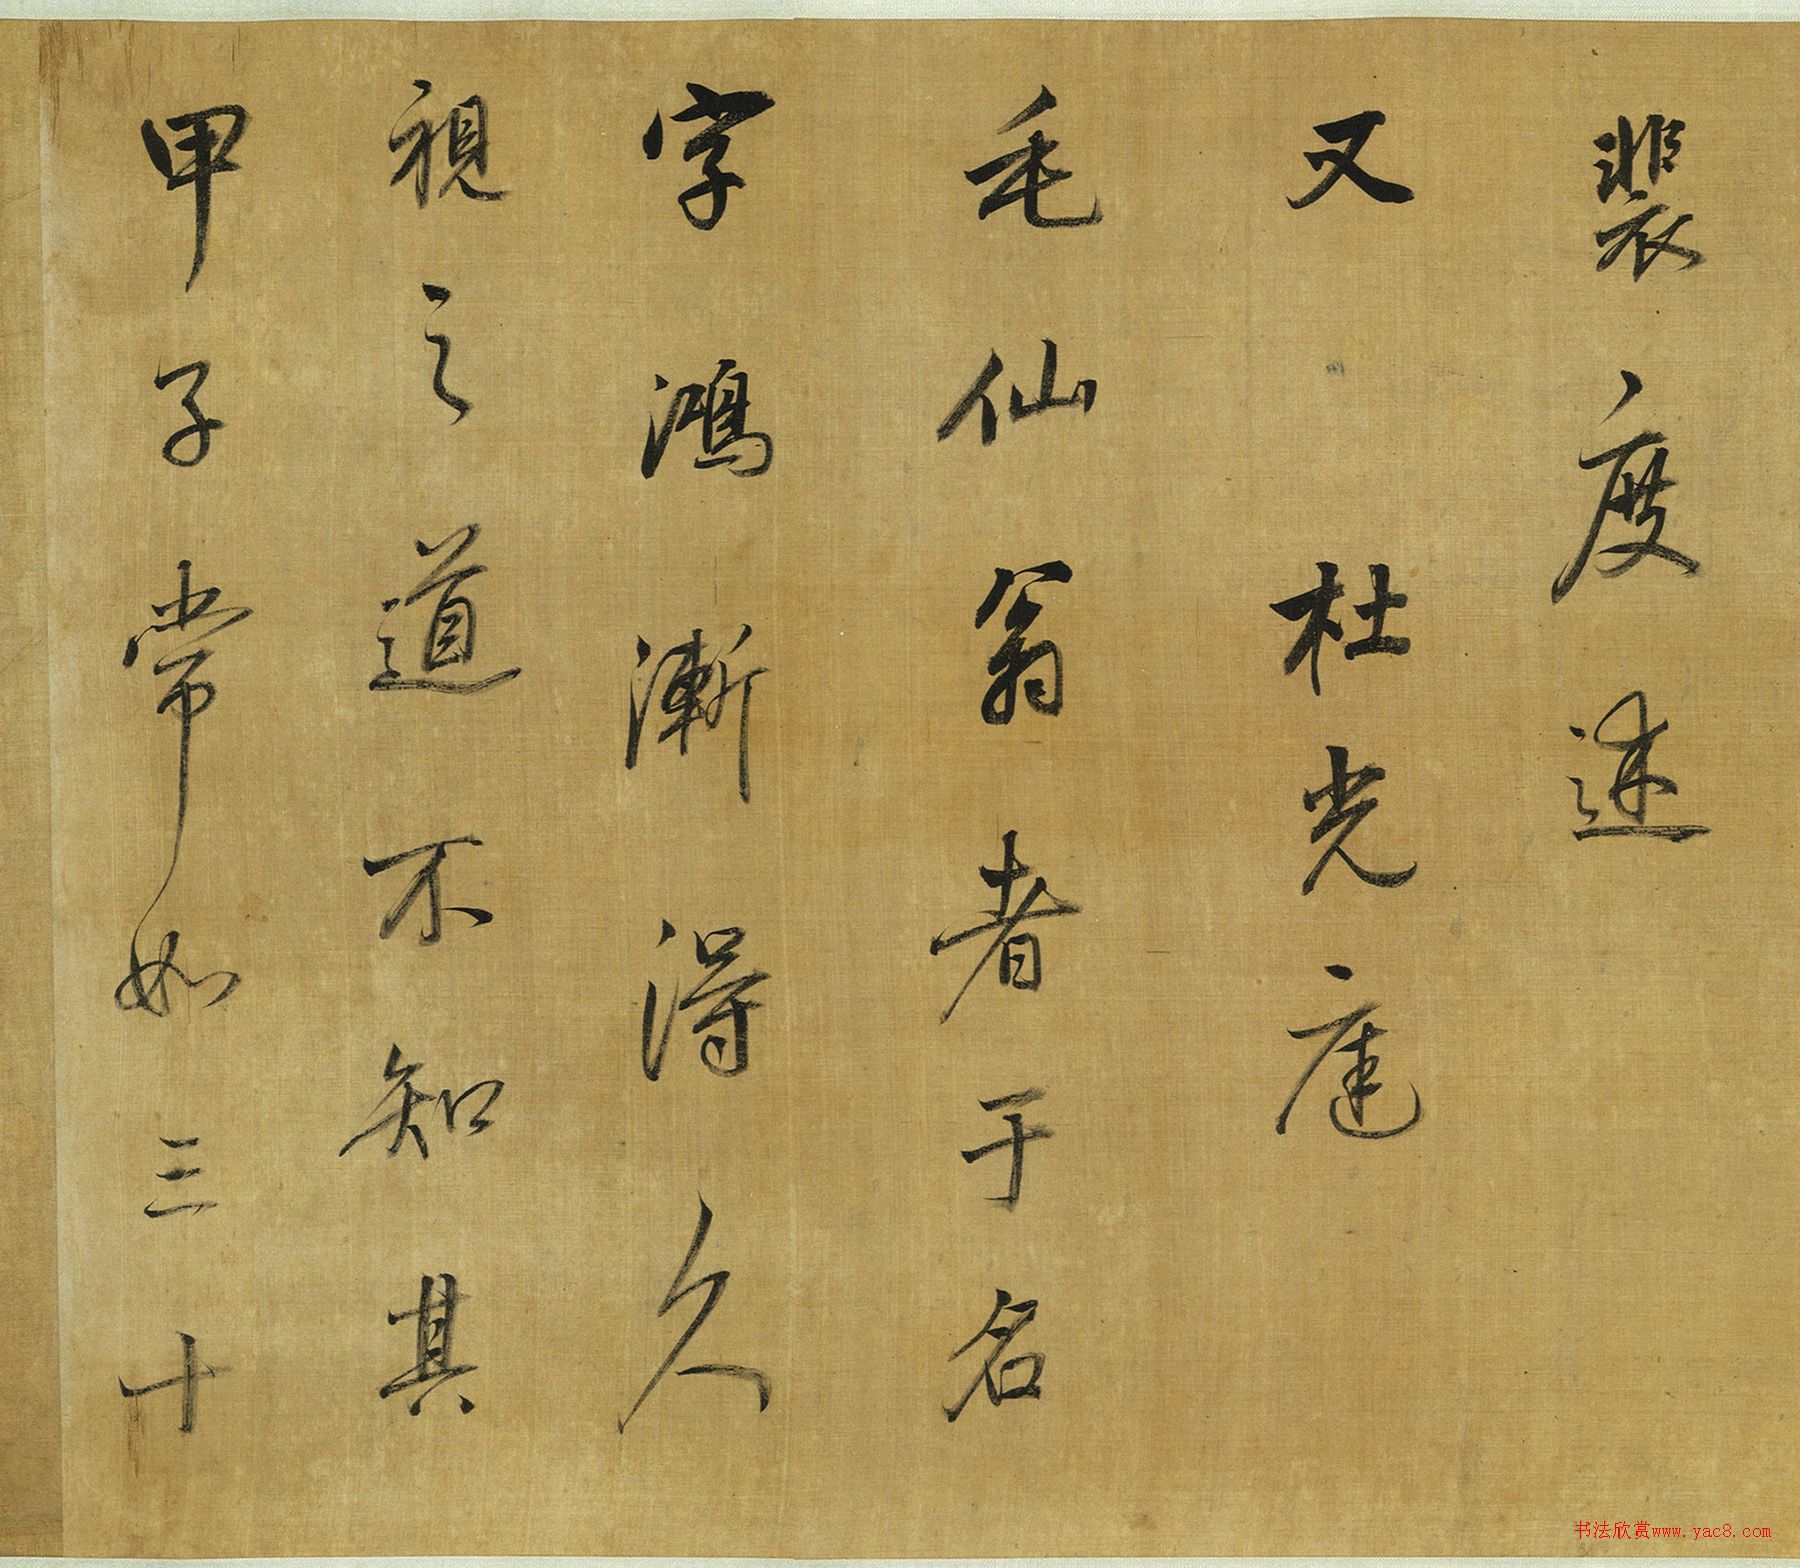 裴度述
又 杜光庭
毛仙翁者于名
字鴻漸得久
視之道不知其
甲子常如三十
书法欣赏www.yac8.com